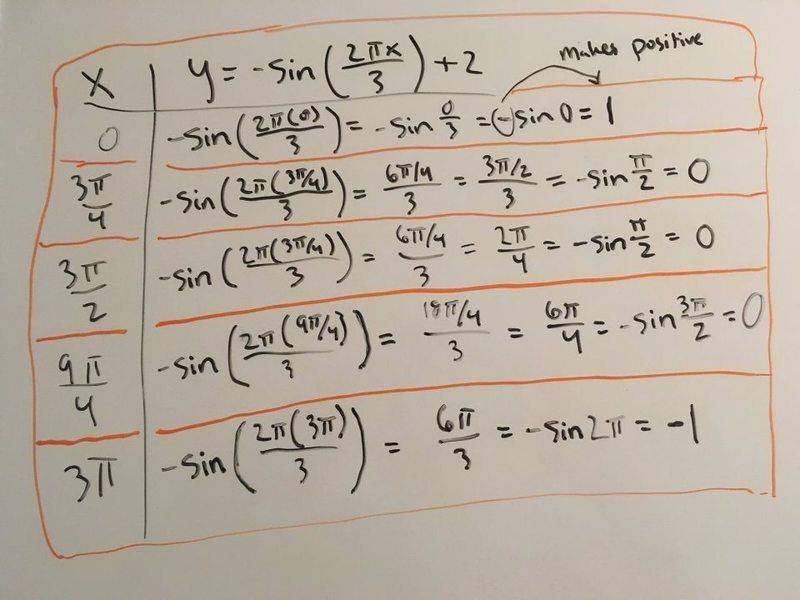 makes positive
x | y = -sin(2πx/3) + 2
0 | -sin(2π(0)/3) = -sin 0/3 = -sin 0 = 1
3π/4 | -sin(2π(3π/4)/3) = 6π/4/3 = 3π/2/3 = -sin π/2 = 0
3π/2 | -sin(2π(3π/4)/3) = 6π/4/3 = 2π/4 = -sin π/2 = 0
9π/4 | -sin(2π(9π/4)/3) = 18π/4/3 = 6π/4 = -sin 3π/2 = 0
3π | -sin(2π(3π)/3) = 6π/3 = -sin 2π = -1